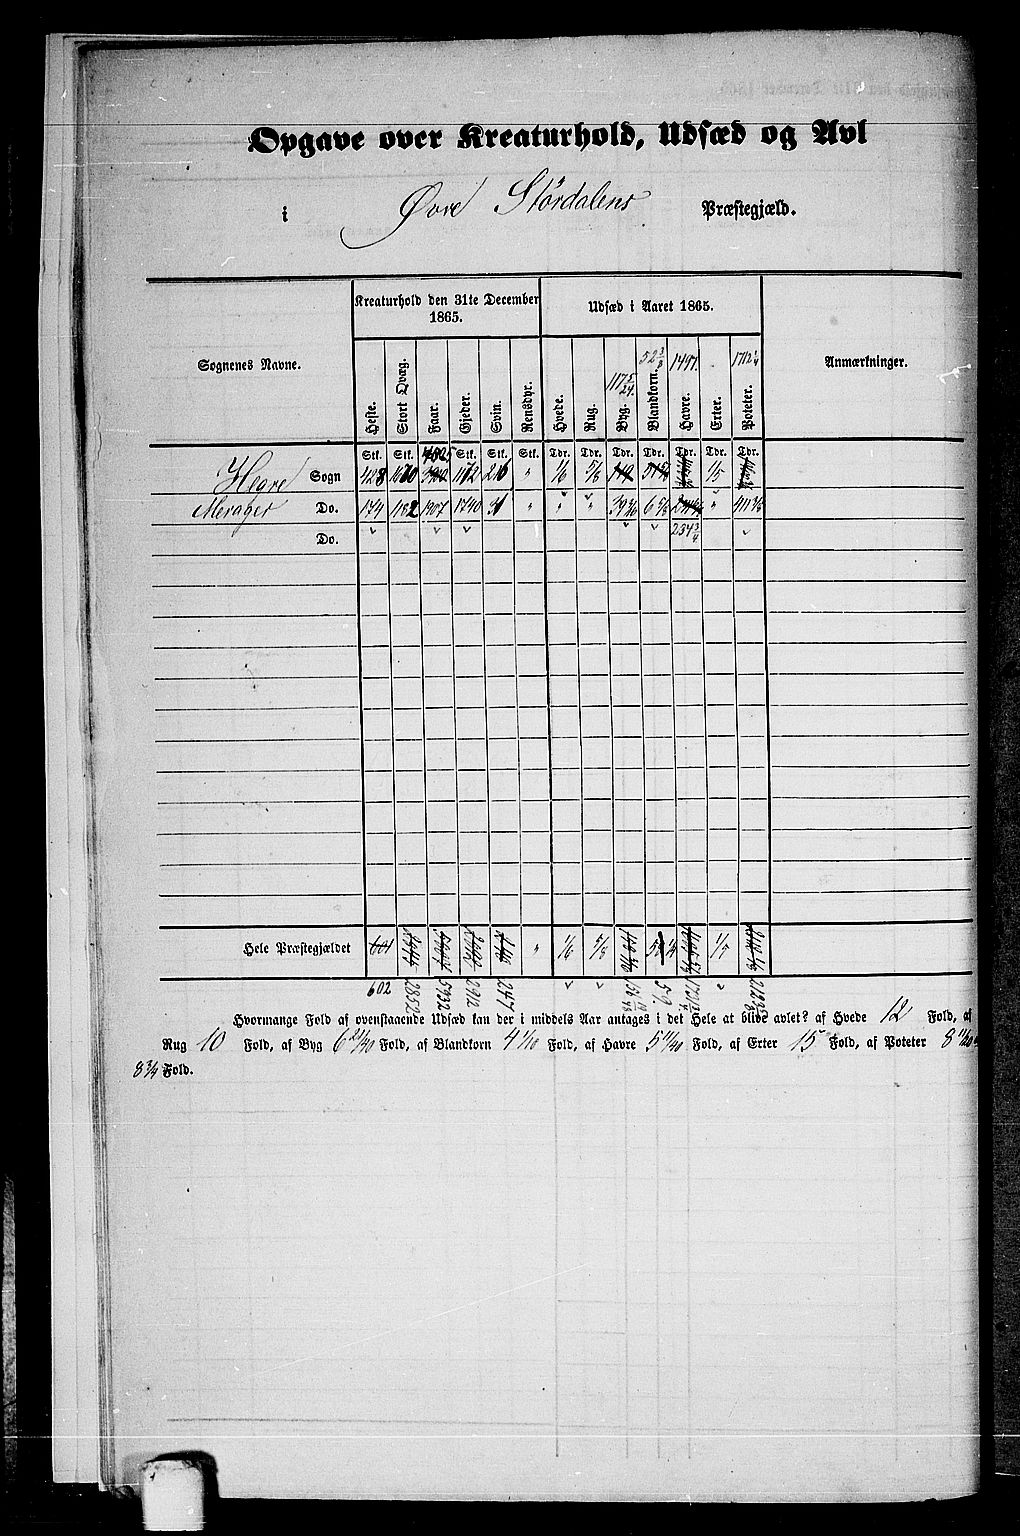 Opgave over Kreaturhold, Udsæd og Avl
i Øvre Stördalens Præstegjæld.
Kreaturhold den 31te December 1865.
Udsæd i Aaret 1865.
Sognenes Navne.
Anmærkninger.
52 3/8 1497. 1712 1/4
117 5/24
Heste. Stort Qvæg. Faar. Gjeder. Svin. Rensdyr. Hvede. Rug. Byg. Blandkorn. Havre. Erter. Poteter.
4025
Stk. Stk. Stk. Stk. Stk. Tdr. Tdr. Tdr. Tdr. Tdr. Tdr. Tdr.
Hegre Sogn 428 1670 1172 216 " 1/6 5/6 119 1/5
Merager Do. 174 1182 1907 1740 31 " " " 39 6 5/8 " 411 3/8
Do. 234 3/4
Hele Præstegjældet 601 " 1/6 5/6 1/5
602 2852 5932 2912 247 59. 2123
Hvormange Fold af ovenstaaende Udsæd kan der i middels Aar antages i det Hele at blive avlet? af Hvede 12 Fold, af
Rug 10 Fold, af Byg 6 21/40 Fold, af Blandkorn 4 1/10 Fold, af Havre 5 11/20 Fold, af Erter 15 Fold, af Poteter 8 11/20
8 3/4 Fold.